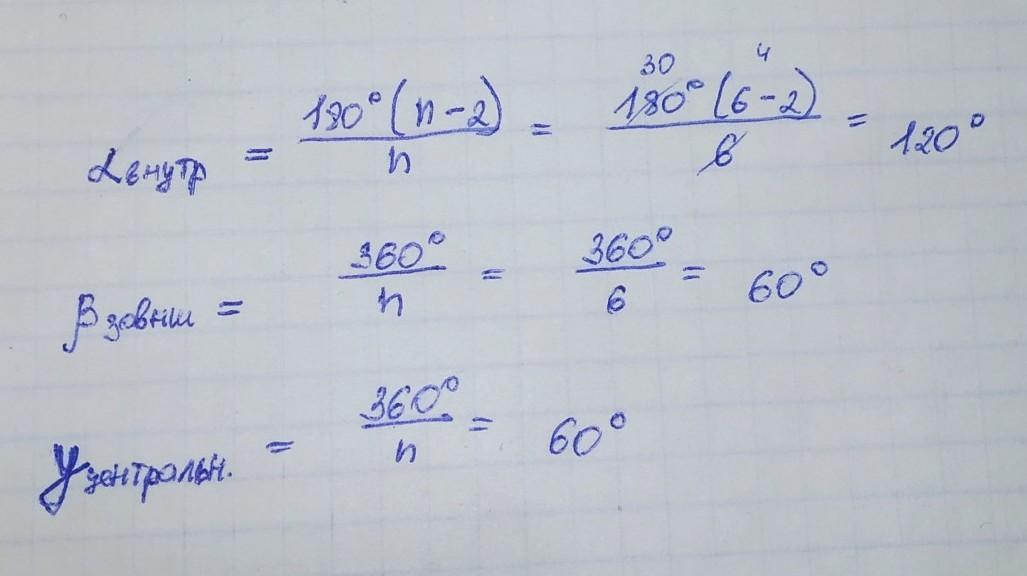 αвнутр = 180°(n-2)/n = 180°(6-2)/6 = 120°
30 4
βзовнш = 360°/n = 360°/6 = 60°
γцентральн. = 360°/n = 60°